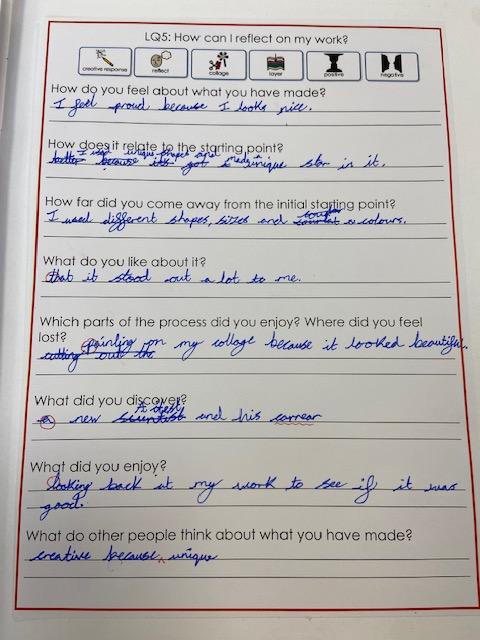 LQ5: How can I reflect on my work?
creative response reflect collage layer positive negative
How do you feel about what you have made?
I feel proud because I looks nice.
How does it relate to the starting point?
I used unique shapes and made a
better because its got a unique star in it.
How far did you come away from the initial starting point?
I used different shapes, sizes and colours.
What do you like about it?
that it stood out a lot to me.
Which parts of the process did you enjoy? Where did you feel
lost?
painting on my collage because it looked beautiful.
cutting out the
What did you discover?
Artist
a new scientist and his carrear
What did you enjoy?
looking back at my work to see if it was
good.
What do other people think about what you have made?
creative because unique